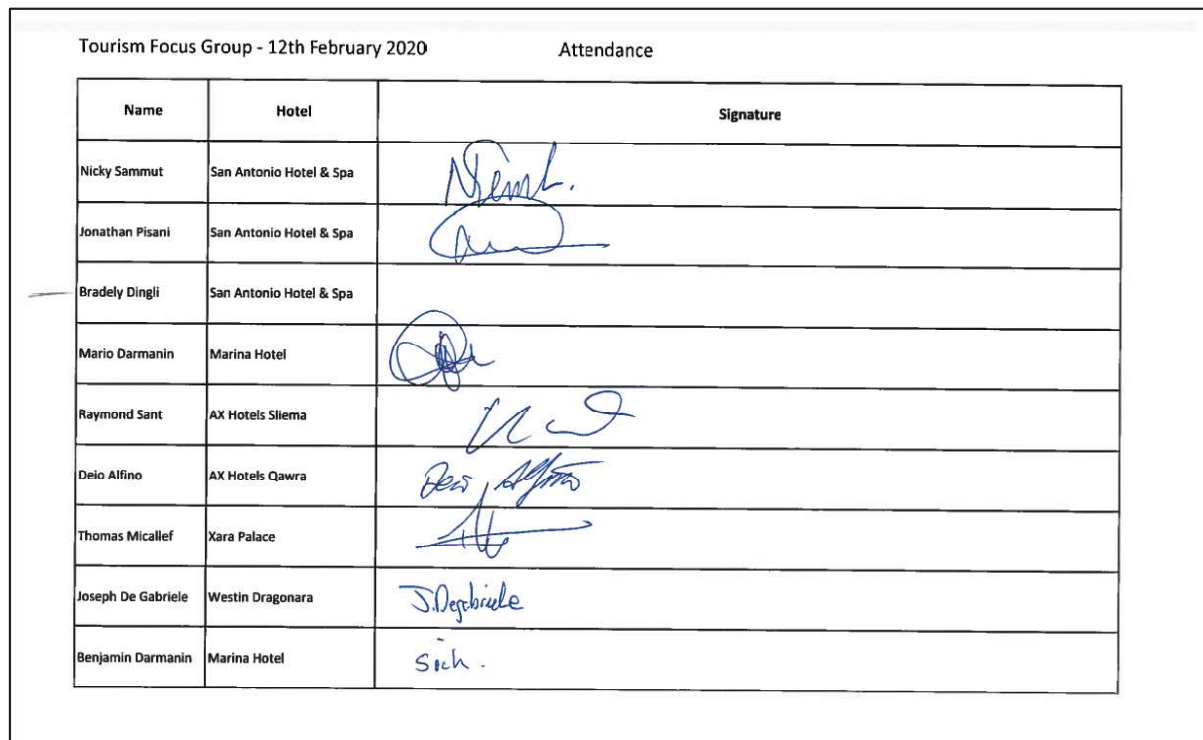 Tourism Focus Group - 12th February 2020 Attendance
Name Hotel Signature
Nicky Sammut San Antonio Hotel & Spa
Jonathan Pisani San Antonio Hotel & Spa
Bradely Dingli San Antonio Hotel & Spa
Mario Darmanin Marina Hotel
Raymond Sant AX Hotels Sliema
Deio Alfino AX Hotels Qawra Deio Alfino
Thomas Micallef Xara Palace
Joseph De Gabriele Westin Dragonara J.Degabriele
Benjamin Darmanin Marina Hotel Sick.